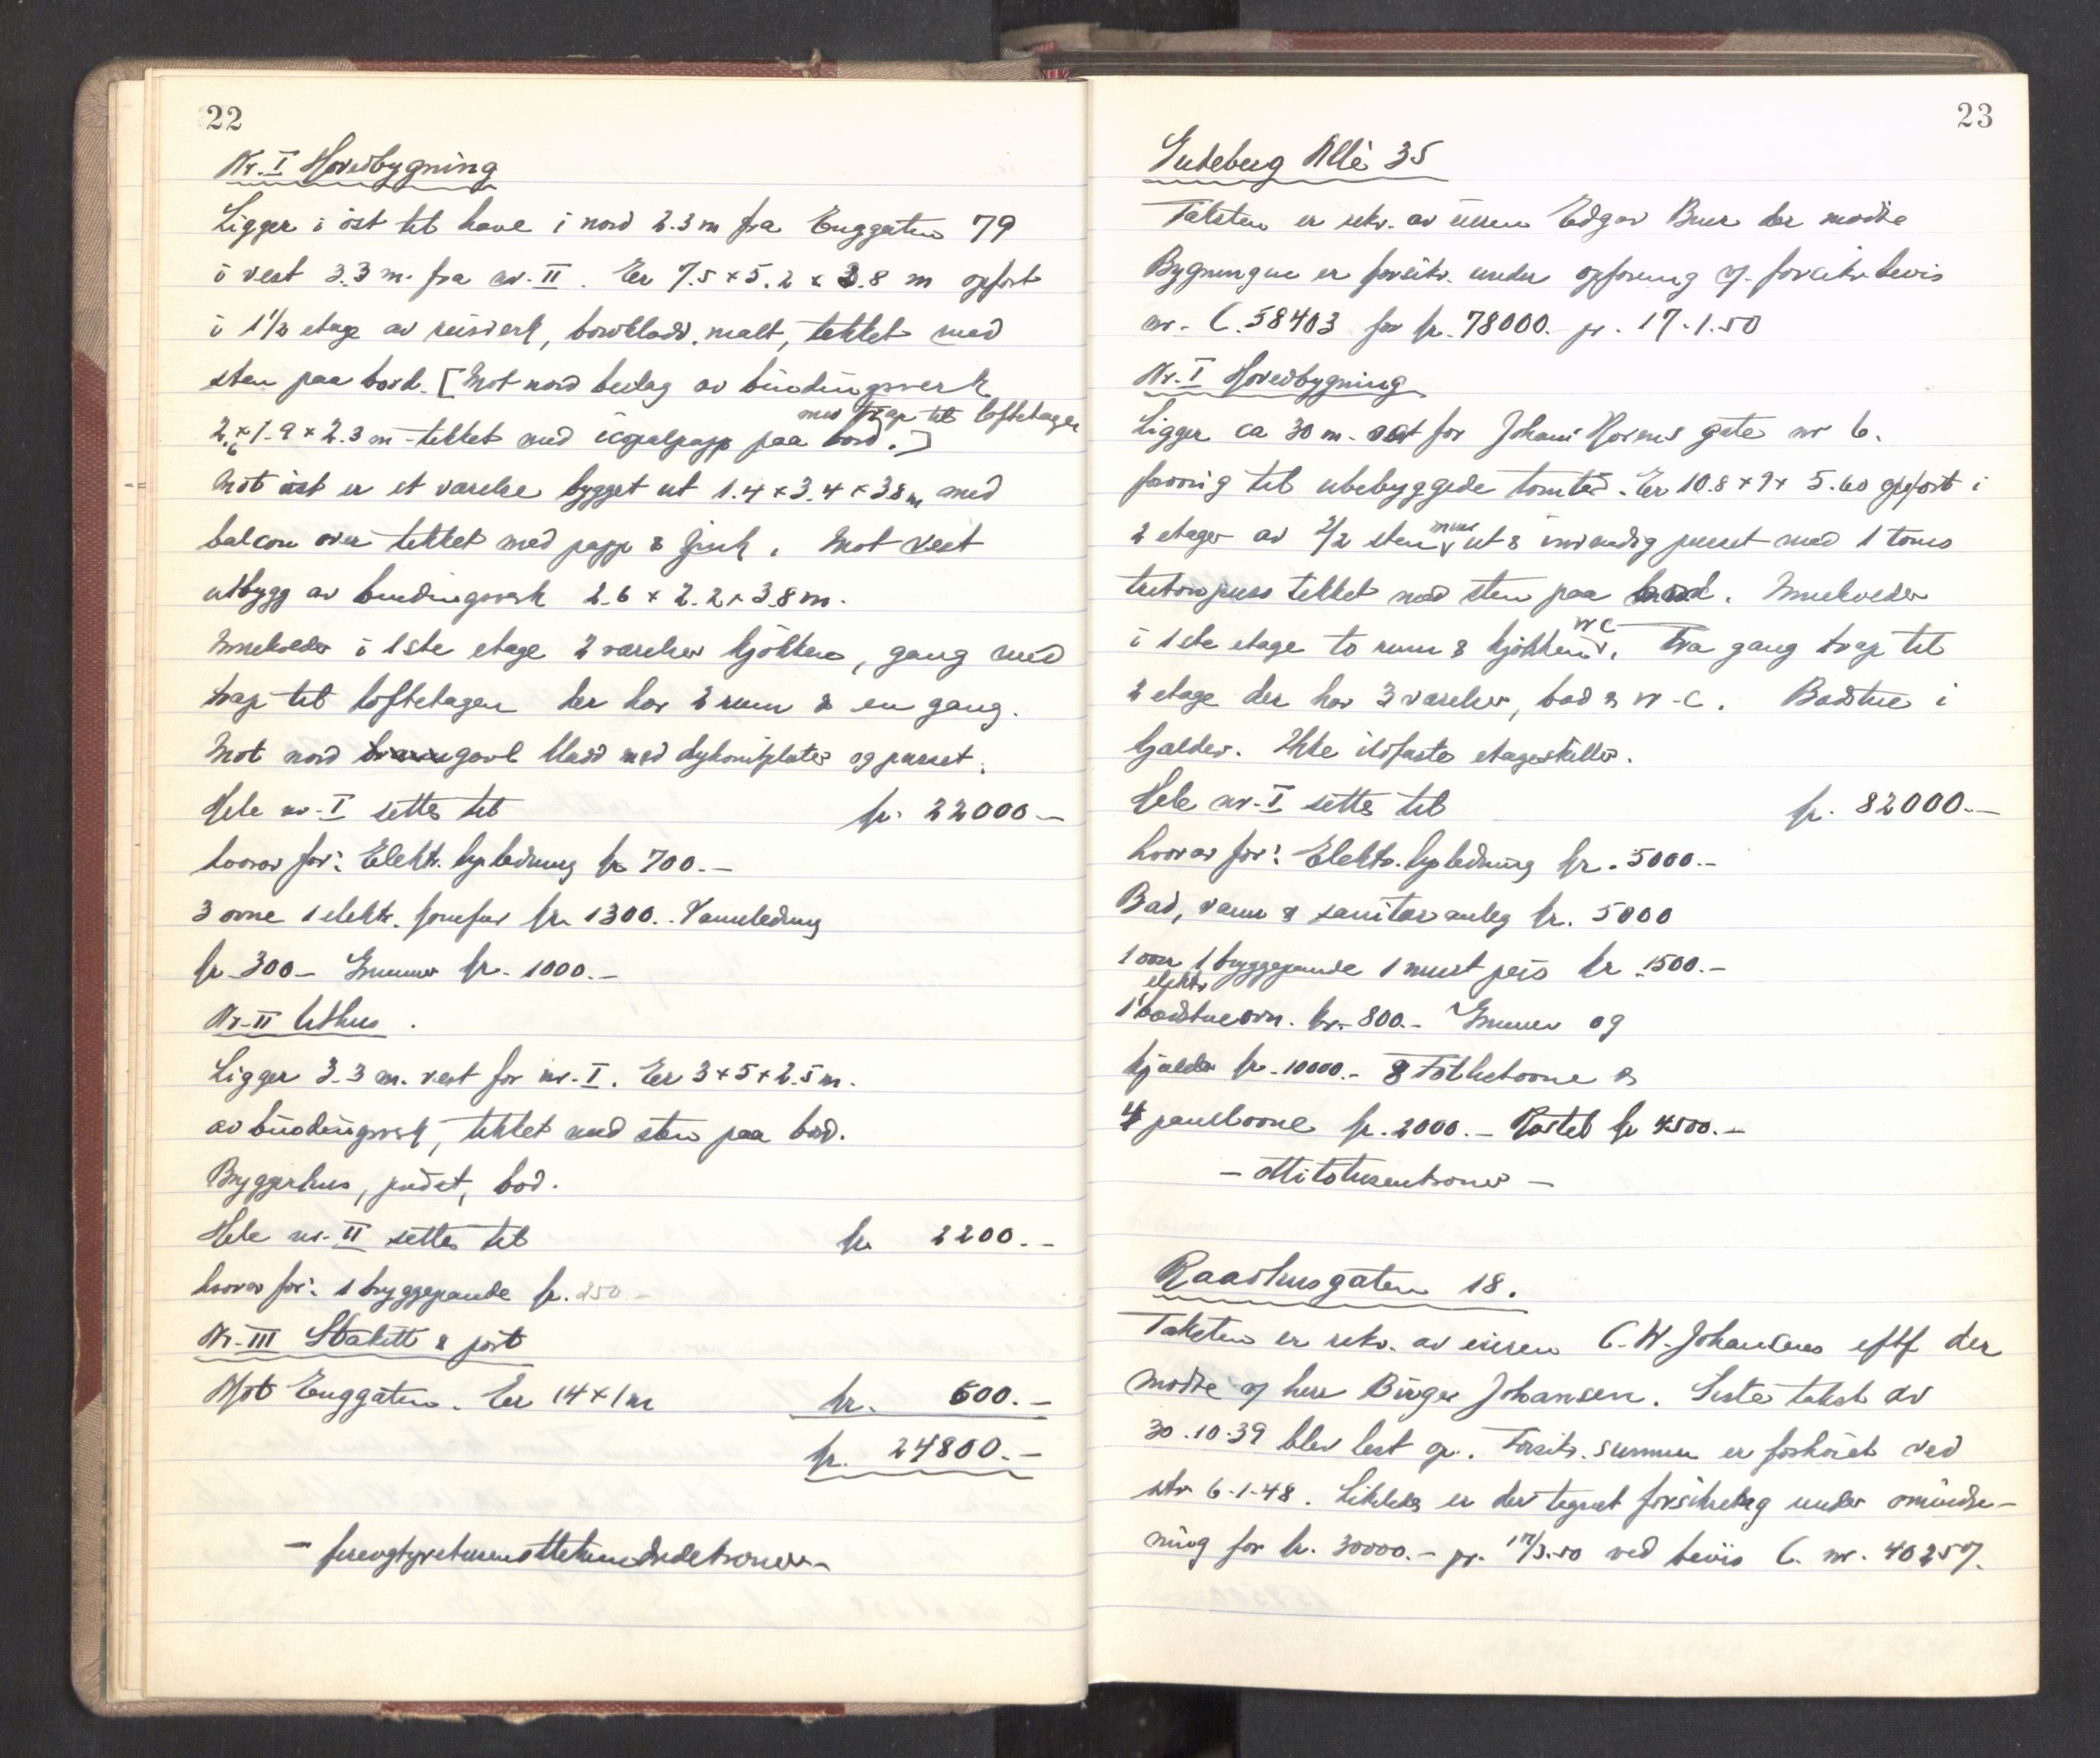 22
Nr. I Hovedbygning
Ligger i öst til have i nord 2.3 m fra Enggaten 79
i vest 3.3 m. fra nr. II. Er 7.5 x 5.2 x 3.8 m opfört
i 1 1/2 etage av reisverk, bordkladd, malt, tekket med
sten paa bord. [Mot nord bislag av bindingsverk
med trap til loftetagen
2.6 x 1.9 x 2.3 m tekket med icopalpapp paa bord.]
Mot öst er et værelse bygget ut 1.4 x 3.4 x 3.8 m med
balcon over tekket med papp & zink. Mot vest
utbygg av bindingsverk 2.6 x 2.2 x 3.8 m.
Inneholder i 1ste etage 2 værelser kjökken, gang med
trap til loftetagen der har 2 rum & en gang.
Mot nord gavl kladd med dykonitplater og pusset.
Hele nr. I settes til kr. 22000.-
hvorav for: Elektr. lysledning kr 700.-
3 ovne 1 elektr. komfur kr. 1300.- Vannledning
kr. 300.- Grunnmur kr. 1000.-
Nr. II Uthus.
Ligger 3.3 m. vest for nr. I. Er 3 x 5 x 2.5 m.
av bindingsverk, tekket med sten paa bord.
Bryggerhus, privet, bod.
Hele nr. II settes til kr. 2200.-
hvorav for: 1 bryggepande kr. 250.-
Nr. III Stakitt & port
Mot Enggaten. Er 14 x 1 m kr. 600.-
kr. 24800.-
- fireogtyvetusenottehundredekroner -
23
Gudeberg Allè 35
Taksten er rekv. av eieren Edgar Buer der mødte
Bygningen er forsikr. under opförning if. forsikr. bevis
nr. C. 58403 for kr. 78000.- pr. 17.1.50
Nr. I Hovedbygning
Ligger ca 30 m. öst for Johan Hornes gate nr 6.
forövrig til ubebyggede tomter. Er 10.8 x 9 x 5.60 opfört i
2 etager av 2/2 sten mur ut & invendig pusset med 1 toms
tretonpuss tekket med sten paa bord. Inneholder
i 1ste etage to rum & kjökken, WC. Fra gang trap til
2 etage der har 3 værelser, bad & W.C. Badstue i
kjelder. Ikke ildfaste etageskiller.
Hele nr. I settes til kr. 82000.-
hvorav for: Elektr. lysledning kr. 5000.-
Bad, vann & sanitæranleg kr. 5000
1 ovn 1 bryggepande 1 muret peis kr 1500.-
1 elektr. badstueovn. kr. 800.- Grunnmur og
kjelder kr. 10000.- 8 &
4 panelovne kr. 2000.- kr 4500.-
- ottitotusenkroner -
Raadhusgaten 18.
Taksten er rekv. av eieren C. W. Johansens eftf der
mødte v/ herr Birger Johansen. Siste takst av
30.10.39 blev lest op. Forsikr. summen er forhöiet ved
skr 6-1-48. Likeledes er der tegnet forsikring under omindre-
ning for kr. 30000.- pr. 17/3.50 ved bevis C. nr. 40257.